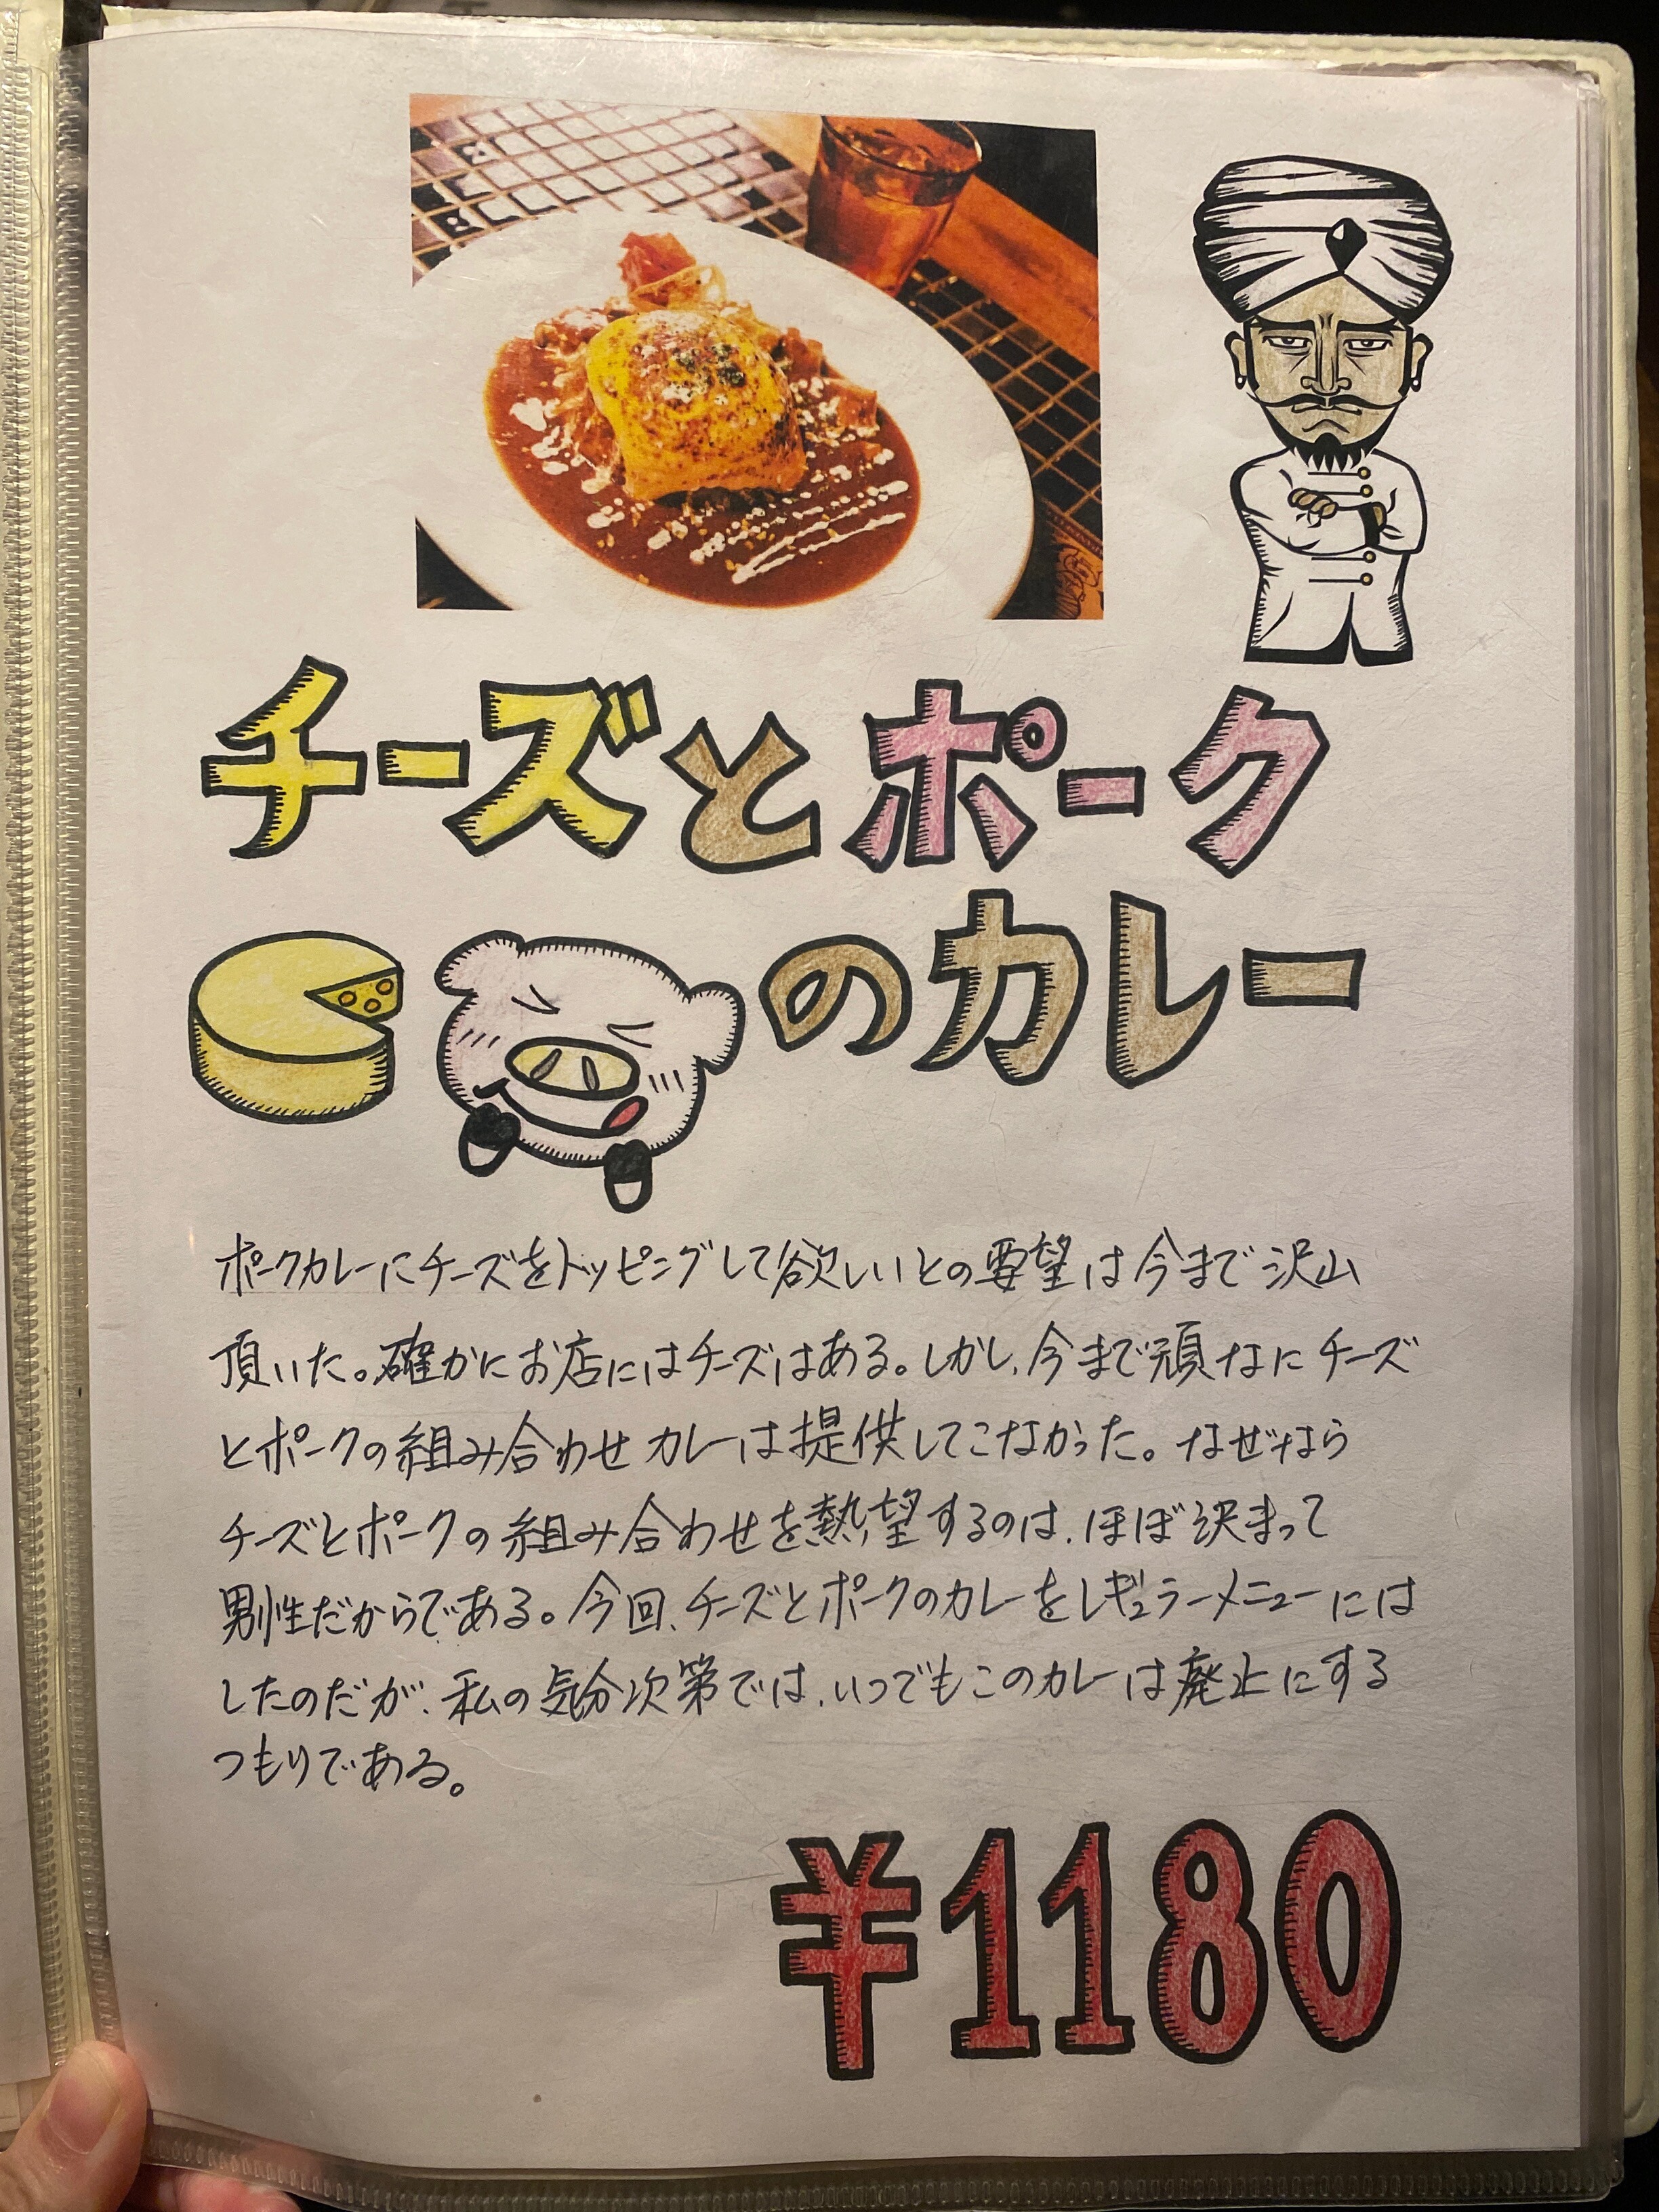 チーズとポーク
のカレー
ポークカレーにチーズをトッピングして欲しいとの要望は今まで沢山
頂いた。確かにお店にはチーズはある。しかし、今まで頑なにチーズ
とポークの組み合わせカレーは提供してこなかった。なぜなら
チーズとポークの組み合わせを熱望するのは、ほぼ決まって
男性だからである。今回、チーズとポークのカレーをレギュラーメニューには
したのだが、私の気分次第では、いつでもこのカレーは廃止にする
つもりである。
¥1180